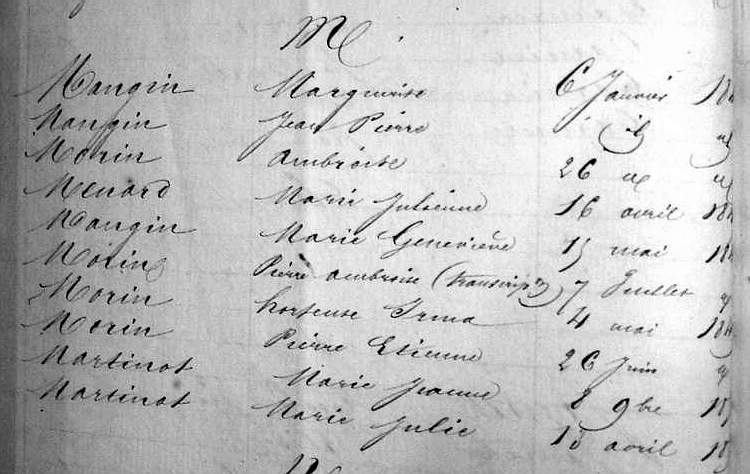 M.
Mangin Marguerite 6 Janvier 18
Mangin Jean Pierre id
Morin Ambroise 26
Menard Marie Julienne 16 avril 18
Mangin Marie Geneviève 15 mai 18
Morin Pierre Ambroise (transcript) 7 Juillet
Morin hortense Irma 4 mai 18
Morin Pierre Etienne 26 Juin
Martinot Marie Jeanne 8 9bre 18
Martinot Marie Julie 18 avril 18